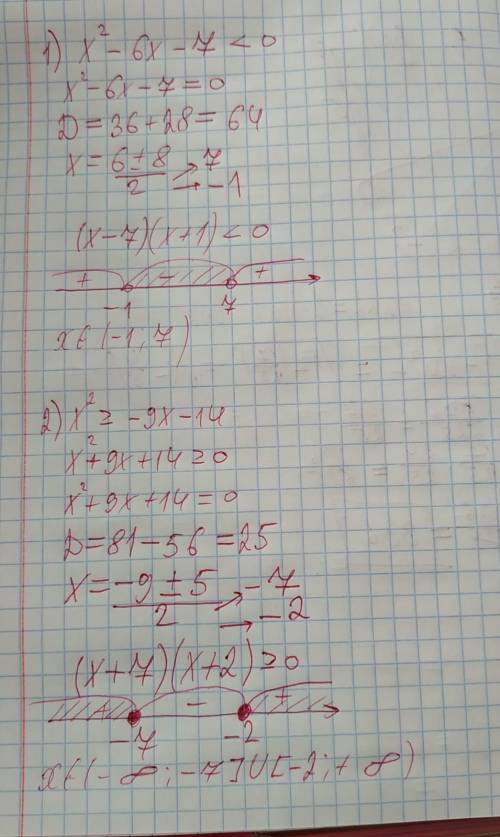 1) x² - 6x - 7 < 0
x² - 6x - 7 = 0
D = 36 + 28 = 64
x = (6 ± 8)/2 → 7
→ -1
(x - 7)(x + 1) < 0
+ - +
-1 7
x ∈ (-1, 7)
2) x² ≥ -9x - 14
x² + 9x + 14 ≥ 0
x² + 9x + 14 = 0
D = 81 - 56 = 25
x = (-9 ± 5)/2 → -7
→ -2
(x + 7)(x + 2) ≥ 0
+ - +
-7 -2
x ∈ (-∞; -7] U [-2; +∞)